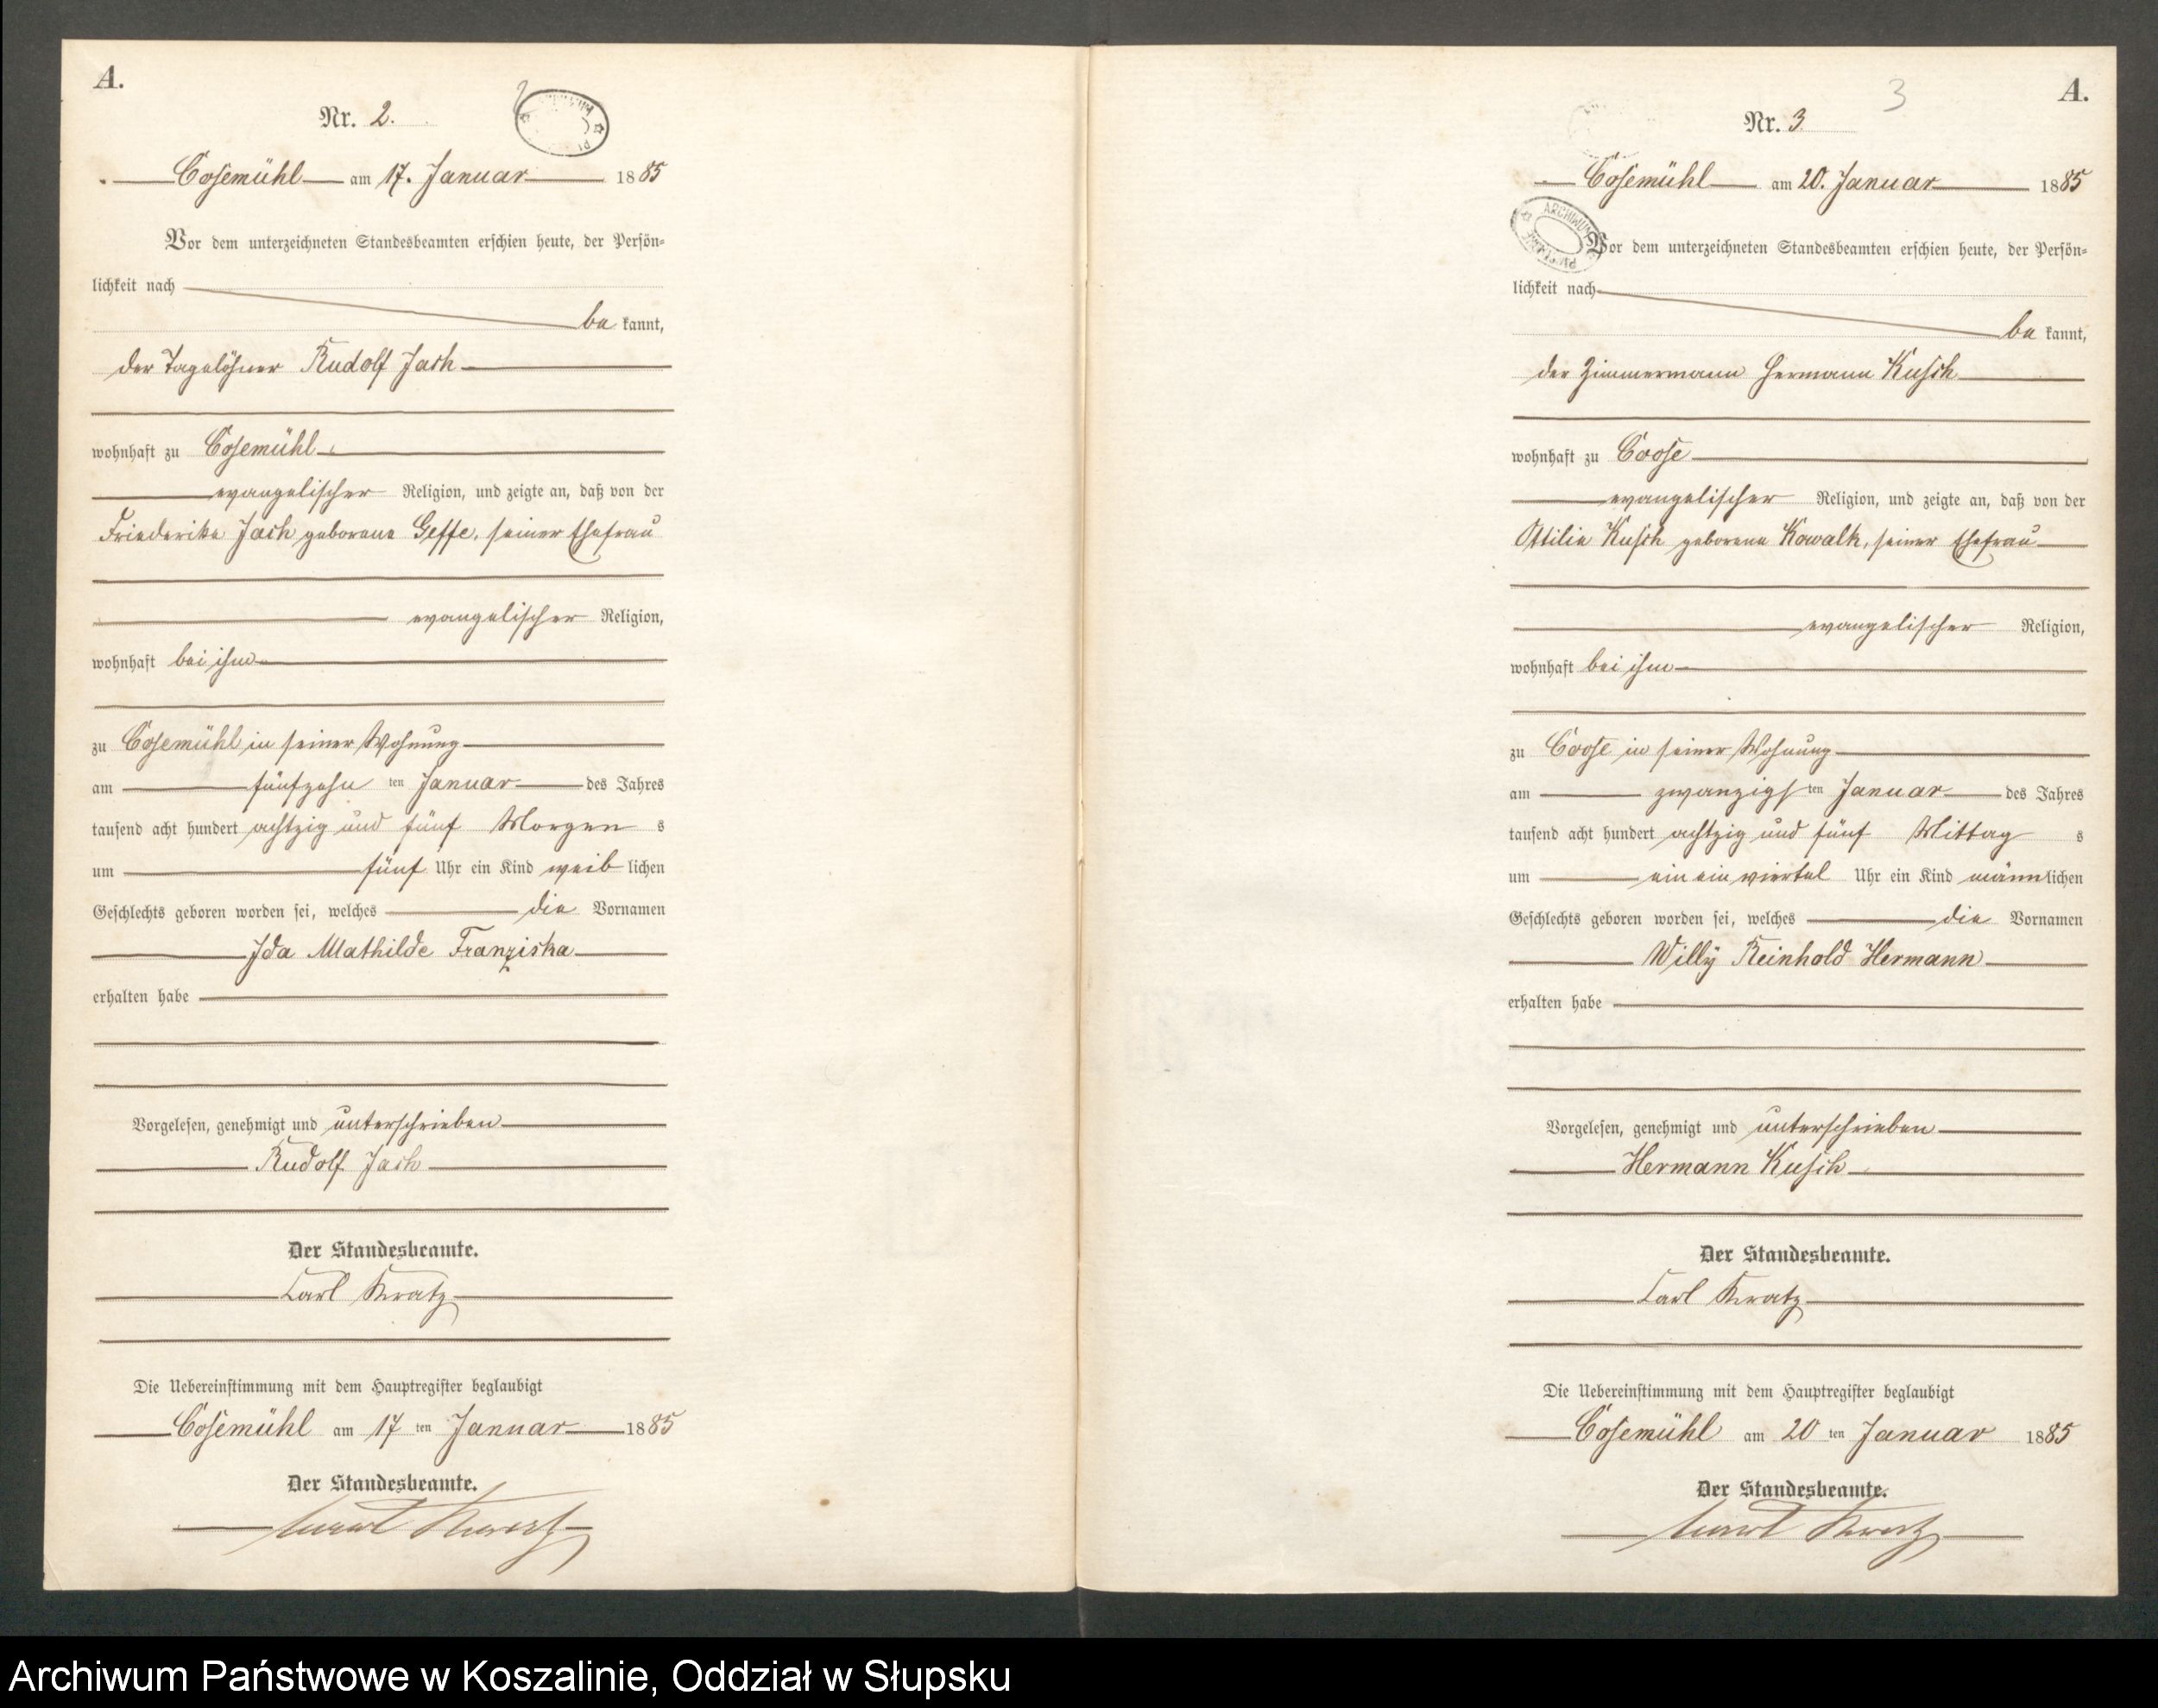 A.
Nr. 2.
Cosemühl am 17. Januar 1885
Vor dem unterzeichneten Standesbeamten erschien heute, der Persön-
lichkeit nach
be kannt,
der Tagelöhner Rudolf Jach
wohnhaft zu Cosemühl
evangelischer Religion, und zeigte an, daß von der
Friederike Jach geborene Geffe, seiner Ehefrau
evangelischer Religion,
wohnhaft bei ihm
zu Cosemühl in seiner Wohnung
am fünfzehn ten Januar des Jahres
tausend acht hundert achtzig und fünf Morgen s
um fünf Uhr ein Kind weib lichen
Geschlechts geboren worden sei, welches die Vornamen
Ida Mathilde Franziska
erhalten habe
Vorgelesen, genehmigt und unterschrieben
Rudolf Jach
Der Standesbeamte.
Carl Kratz
Die Uebereinstimmung mit dem Hauptregister beglaubigt
Cosemühl am 17 ten Januar 1885
Der Standesbeamte.
Carl Kratz
3
A.
Nr. 3
Cosemühl am 20. Januar 1885
ARCHIWUM
Vor dem unterzeichneten Standesbeamten erschien heute, der Persön-
lichkeit nach
be kannt,
der Zimmermann Hermann Kusch
wohnhaft zu Coose
evangelischer Religion, und zeigte an, daß von der
Ottilie Kusch geborene Kowalk, seiner Ehefrau
evangelischer Religion,
wohnhaft bei ihm
zu Coose in seiner Wohnung
am zwanzigs ten Januar des Jahres
tausend acht hundert achtzig und fünf Mittag s
um ein ein viertel Uhr ein Kind männlichen
Geschlechts geboren worden sei, welches die Vornamen
Willy Reinhold Hermann
erhalten habe
Vorgelesen, genehmigt und unterschrieben
Hermann Kusch
Der Standesbeamte.
Carl Kratz
Die Uebereinstimmung mit dem Hauptregister beglaubigt
Cosemühl am 20 ten Januar 1885
Der Standesbeamte.
Carl Kratz
Archiwum Państwowe w Koszalinie, Oddział w Słupsku